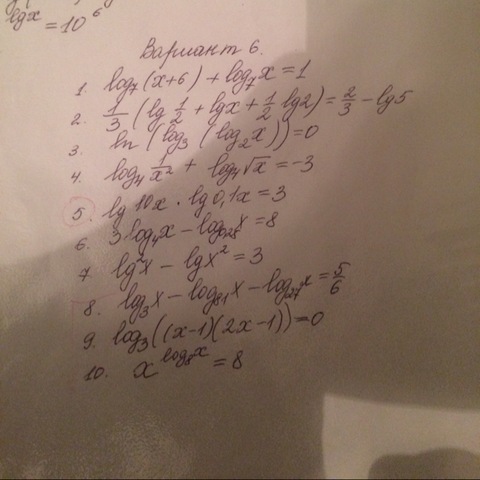 lgx = 10^6
Вариант 6.
1. log₇(x+6) + log₇x = 1
2. 1/3 (lg 1/2 + lgx + 1/2 lg2) = 2/3 - lg5
3. ln(log₃(log₂x)) = 0
4. log₄ 1/x² + log₄√x = -3
5. lg10x · lg0,1x = 3
6. 3log₄x - log₀,₁₂₅x = 8
7. lg²x - lgx² = 3
8. log₃x - log₈₁x - log₂₇x = 5/6
9. log₃((x-1)(2x-1)) = 0
10. x^(log₈x) = 8